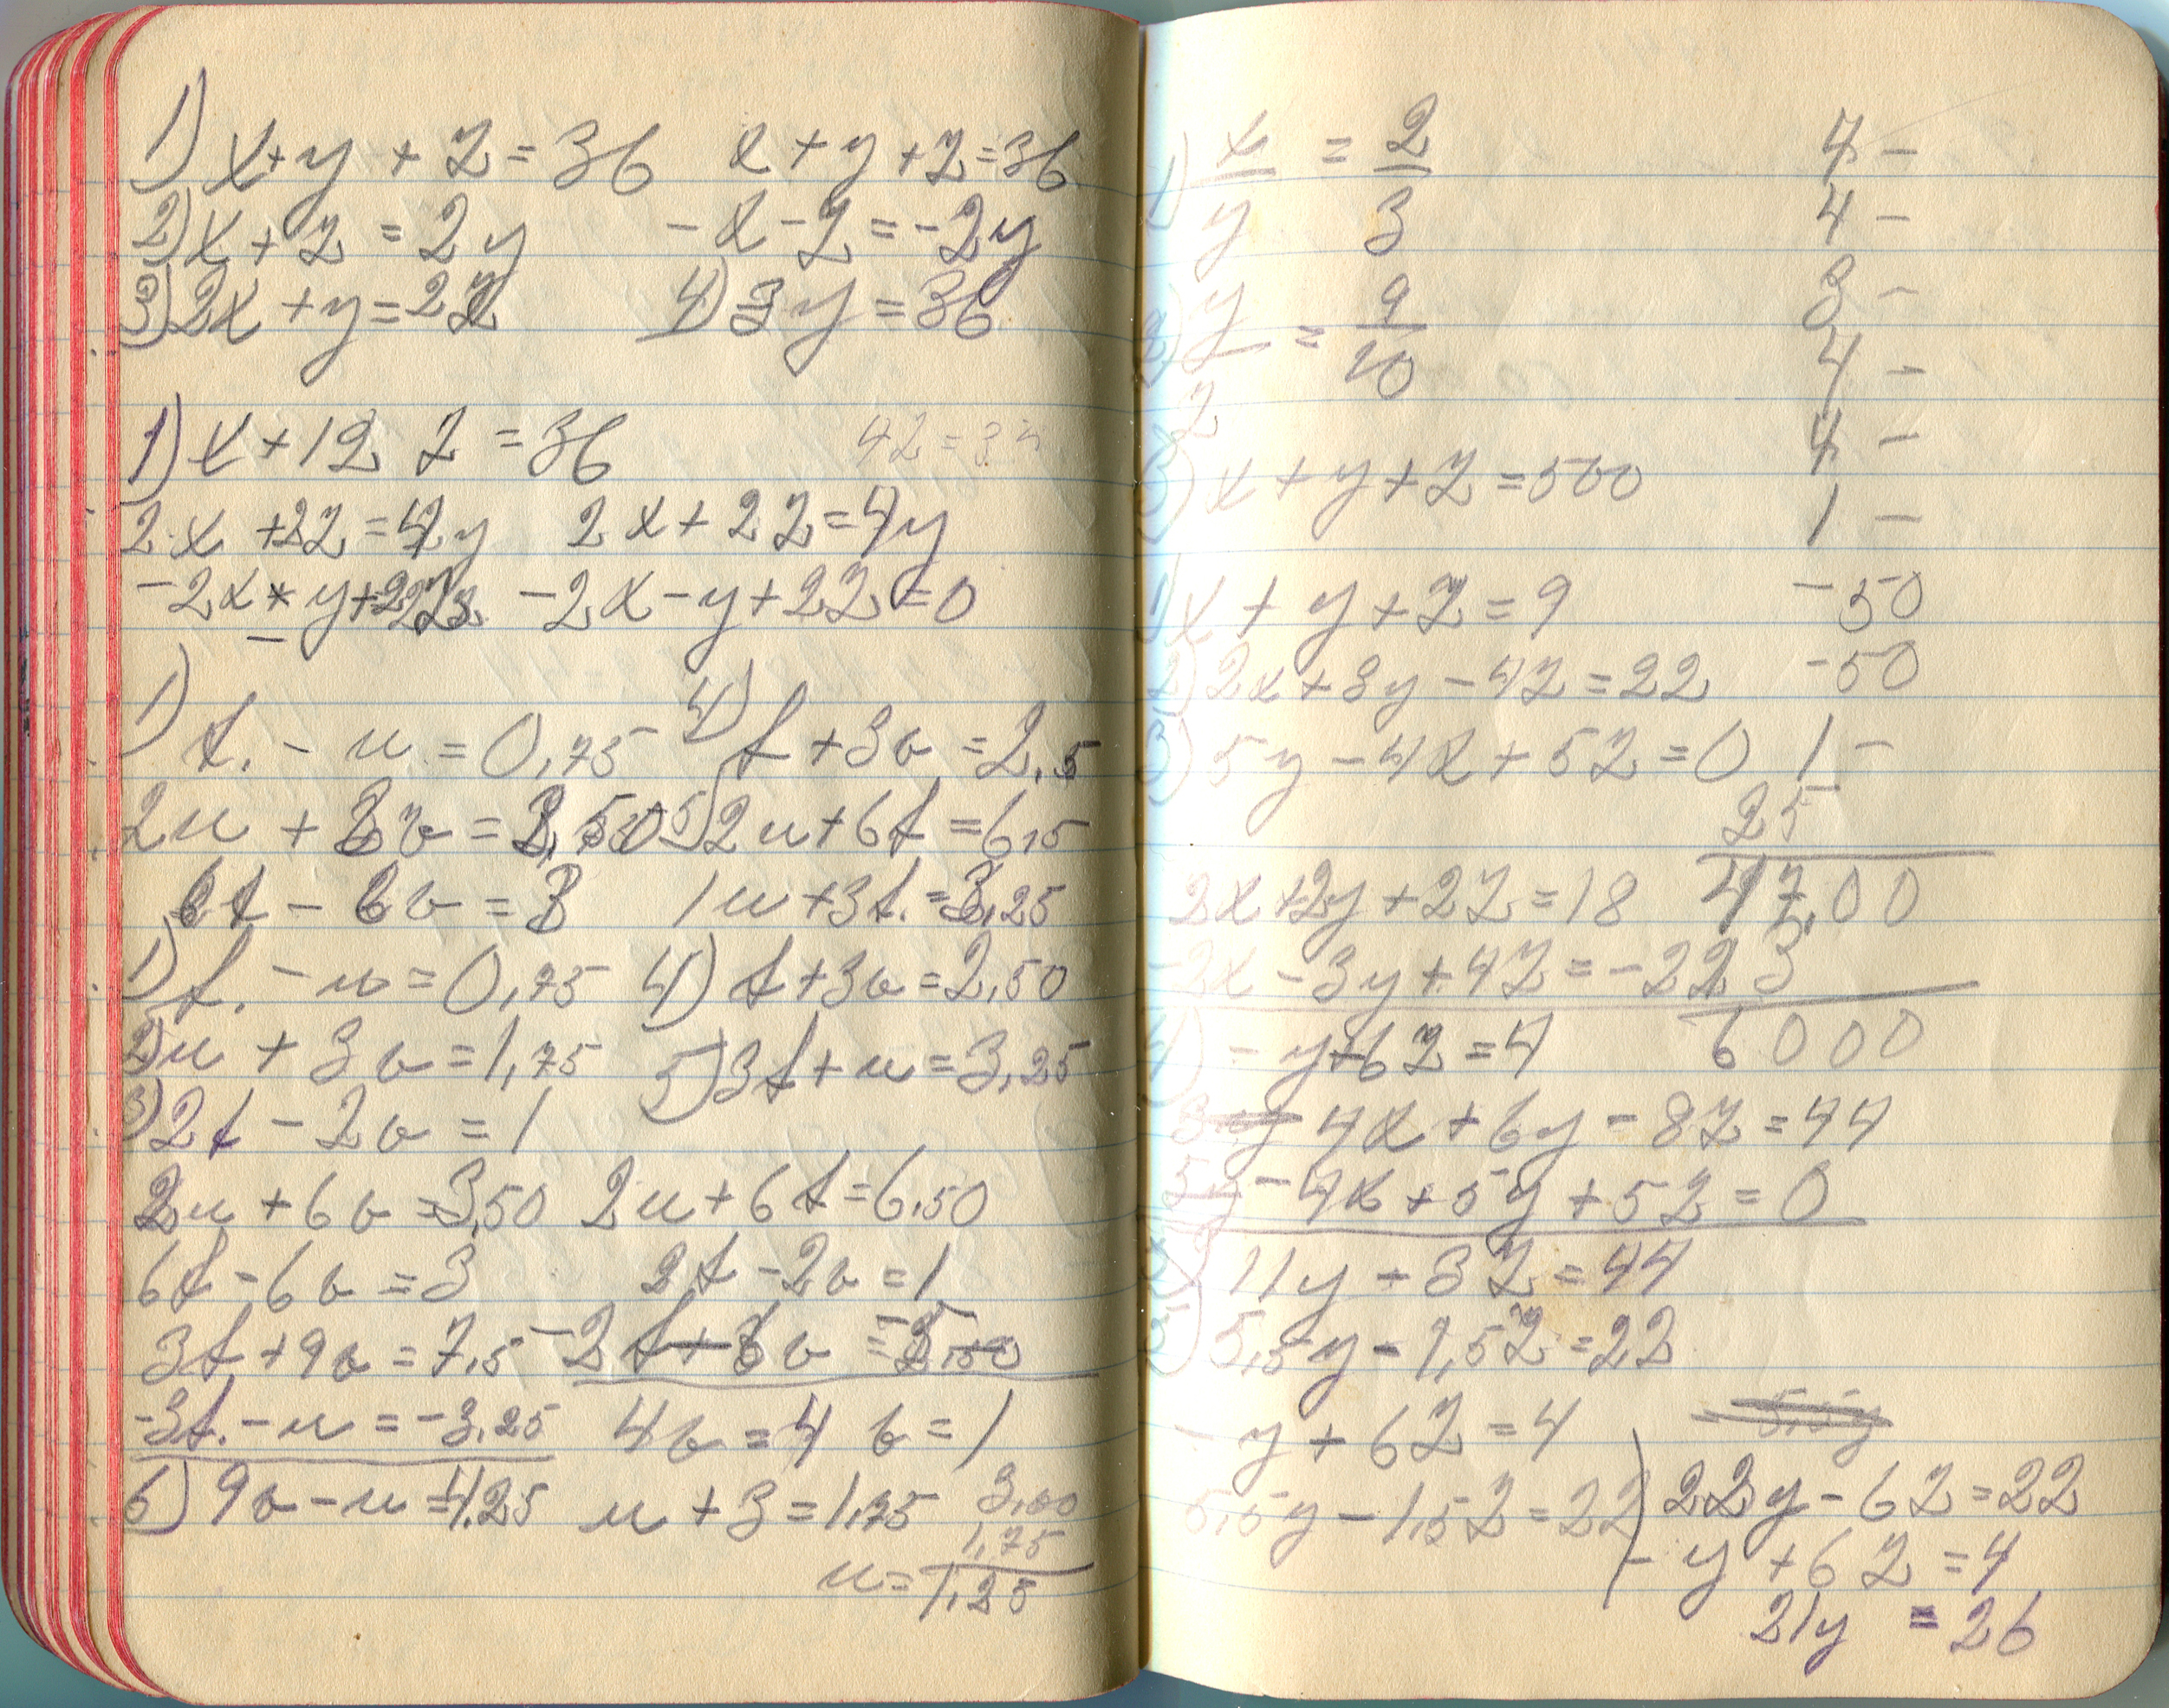 1) x+y+z=36 x+y+z=36
2) x+z=2y -x-z=-2y
3) 2x+y=2z 4) 3y=36
1) x+12 z=36 42=3
2x+2z=4y 2x+2z=4y
-2x y+2z -2x-y+2z=0
1) t.-u=0,75 4) t+3v=2,5
2u+3v=3,50 5) 2u+6t=6,5
6t-6v=3 1u+3t.=3,25
1) t.-u=0,75 4) t+3v=2,50
2) u+3v=1,75 5) 3t+u=3,25
3) 2t-2v=1
2u+6v=3,50 2u+6t=6,50
6t-6v=3 2t-2v=1
3t+9v=7,5 -2t+6v=-5,00
-3t.-u=-3,25 4v=4 v=1
6) 9v-u=4,25 u+3=1,75 3,00
1,75
u=1,25
1) x/y=2/3
2) y/z=9/10
3) x+y+z=500
1) x+y+z=9
2) 2x+3y-4z=22
3) 5y-4x+5z=0
2x+2y+2z=18
-2x-3y+4z=-22
4) -y+6z=4
4x+6y-8z=44
5y -4x+5y+5z=0
11y-3z=44
5) 5,5y-1,5z=22
-y+6z=4
5,5y-1,5z=22
22y-6z=22
-y+6z=4
21y=26
4-
4-
3-
4-
4-
1-
-50
-50
1-
25
47,00
3
6000